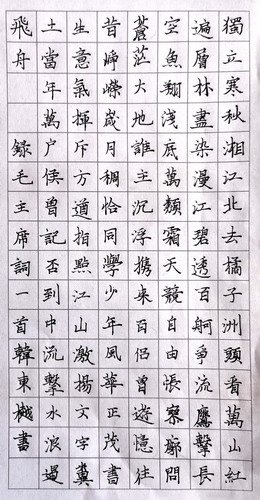 獨立寒秋湘江北去橘子洲頭看萬山紅
遍層林盡染漫江碧透百舸爭流鷹擊長
空魚翔浅底萬類霜天競自由悵寥廓問
蒼茫大地誰主沉浮携來百侶曾遊憶往
昔崢嶸歲月稠恰同學少年風華正茂書
生意氣揮斥方遒指點江山激揚文字糞
土當年萬户侯曾記否到中流擊水浪遏
飛舟 錄毛主席詞一首韓東書